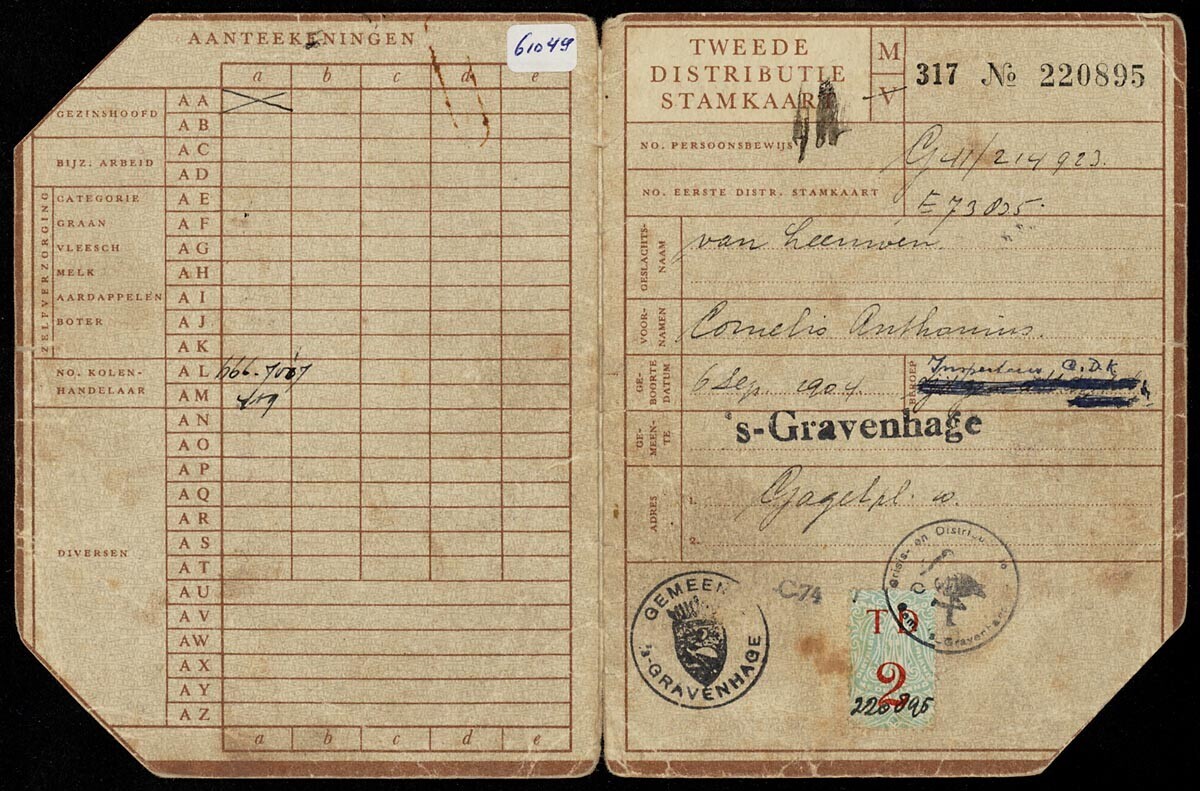 AANTEEKENINGEN
61049
a b c d e
GEZINSHOOFD
AA
AB
BIJZ. ARBEID
AC
AD
ZELFVERZORGING
CATEGORIE AE
GRAAN AF
VLEESCH AG
MELK AH
AARDAPPELEN AI
BOTER AJ
AK
NO. KOLEN-
HANDELAAR
AL
AM 409
DIVERSEN
AN
AO
AP
AQ
AR
AS
AT
AU
AV
AW
AX
AY
AZ
a b c d e
TWEEDE
DISTRIBUTIE
STAMKAART
M
V
317 No 220895
NO. PERSOONSBEWIJS G41/214923.
NO. EERSTE DISTR. STAMKAART E73835.
GESLACHTS-
NAAM
van Leeuwen
VOOR-
NAMEN
Cornelis Anthonius.
GE-
BORTE
DATUM
6 Sep. 1904.
BEROEP
Inspecteur C.D.K
GE-
MEEN-
TE
's-Gravenhage
ADRES
1. Gagelpl. 10.
2.
GEMEENTE
's-GRAVENHAGE
C74
Crisis- en Distributie
Gem. 's-Gravenhage
TD
2
220895